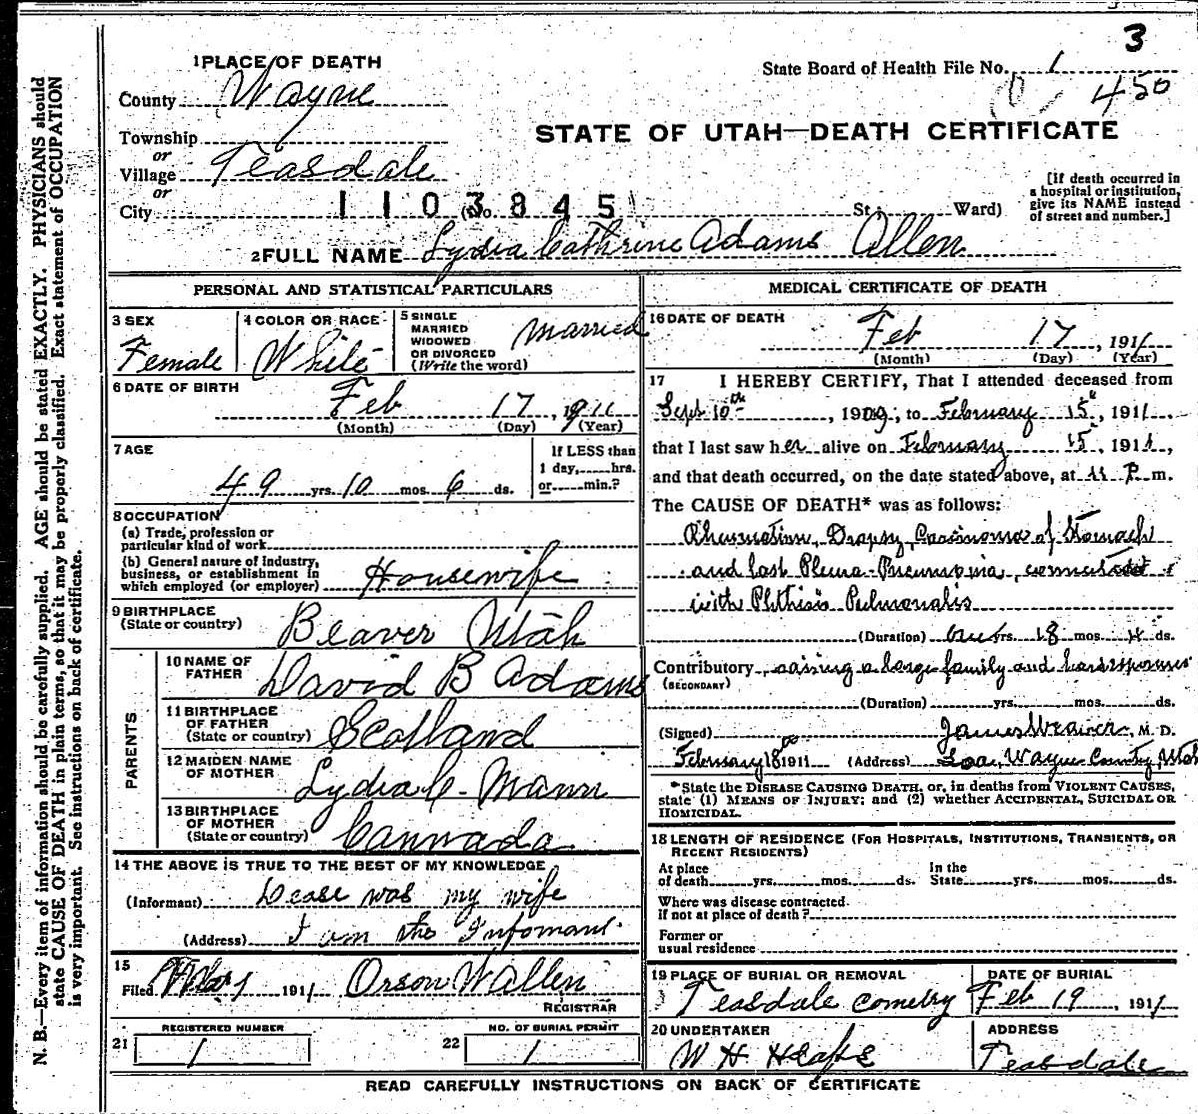 3
1 PLACE OF DEATH
State Board of Health File No. 1
450
County Wayne
STATE OF UTAH—DEATH CERTIFICATE
Township
or
Village Teasdale
or
City (No. St.; Ward)
1103845
[If death occurred in a hospital or institution, give its NAME instead of street and number.]
2 FULL NAME Lydia Cathrine Adams Allen
PERSONAL AND STATISTICAL PARTICULARS
3 SEX
Female
4 COLOR OR RACE
White
5 SINGLE
MARRIED
WIDOWED
OR DIVORCED
(Write the word)
Married
6 DATE OF BIRTH
Feb 17, 1911
(Month) (Day) (Year)
7 AGE
49 yrs. 10 mos. 6 ds.
If LESS than
1 day, hrs.
or min.?
8 OCCUPATION
(a) Trade, profession or
particular kind of work
(b) General nature of industry,
business, or establishment in
which employed (or employer) Housewife
9 BIRTHPLACE
(State or country) Beaver Utah
PARENTS
10 NAME OF
FATHER David B Adams
11 BIRTHPLACE
OF FATHER
(State or country) Scotland
12 MAIDEN NAME
OF MOTHER Lydia C. Mann
13 BIRTHPLACE
OF MOTHER
(State or country) Cannada
14 THE ABOVE IS TRUE TO THE BEST OF MY KNOWLEDGE
(Informant) Dease was my wife
(Address) I am the Infomant
15
Filed 1911 Orson W Allen
REGISTRAR
REGISTERED NUMBER
21 1
NO. OF BURIAL PERMIT
22 1
MEDICAL CERTIFICATE OF DEATH
16 DATE OF DEATH
Feb 17, 1911
(Month) (Day) (Year)
17 I HEREBY CERTIFY, That I attended deceased from
Sept 10th, 1909, to February 15", 1911,
that I last saw her alive on February 15", 1911,
and that death occurred, on the date stated above, at 11 P. m.
The CAUSE OF DEATH* was as follows:
Rhumatism Dropsy, Carcinoma of Stomach
and last Pleura-Pneumonia,
with Phthisis Pulmonalis
(Duration) yrs. 18 mos. ds.
Contributory raising a large family and
(SECONDARY)
(Duration) yrs. mos. ds.
(Signed) James Weaver, M. D.
February 18th 1911 (Address) Loa, Wayne County, Utah
*State the DISEASE CAUSING DEATH, or, in deaths from VIOLENT CAUSES,
state (1) MEANS OF INJURY; and (2) whether ACCIDENTAL, SUICIDAL OR
HOMICIDAL.
18 LENGTH OF RESIDENCE (FOR HOSPITALS, INSTITUTIONS, TRANSIENTS, OR
RECENT RESIDENTS)
At place
of death yrs. mos. ds.
In the
State yrs. mos. ds.
Where was disease contracted
If not at place of death?
Former or
usual residence
19 PLACE OF BURIAL OR REMOVAL
Teasdale cometry
DATE OF BURIAL
Feb 19, 1911
20 UNDERTAKER
W H Heaps
ADDRESS
Teasdale
READ CAREFULLY INSTRUCTIONS ON BACK OF CERTIFICATE
N. B.—Every item of information should be carefully supplied. AGE should be stated EXACTLY. PHYSICIANS should
state CAUSE OF DEATH in plain terms, so that it may be properly classified. Exact statement of OCCUPATION
is very important. See instructions on back of certificate.